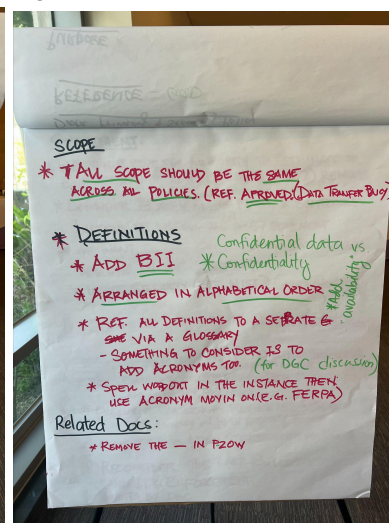 SCOPE
* ALL SCOPE SHOULD BE THE SAME
ACROSS ALL POLICIES. (REF. APROVED (DATA TRANFER BUS)
* DEFINITIONS
Confidential data vs
* Confidentiality
* ADD BII
* Add
availability*
* ARRANGED IN ALPHABETICAL ORDER
* REF. ALL DEFINITIONS TO A SEPRATE
VIA A GLOSSARY
- SOMETHING TO CONSIDER IS TO
ADD ACRONYMS TOO. (for DGC discussion)
* SPELL IN THE INSTANCE THEN
USE ACRONYM MOVIN ON (E.G. FERPA)
Related Docs:
* REMOVE THE — IN